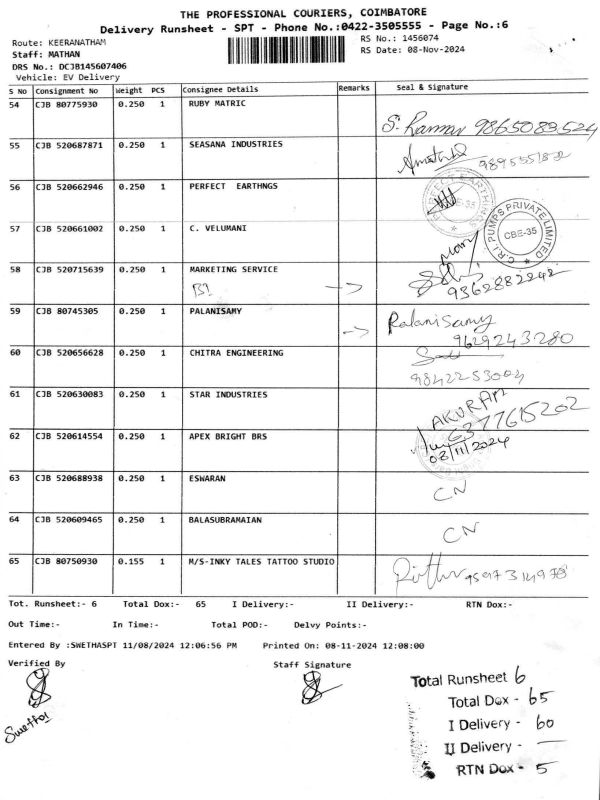 THE PROFESSIONAL COURIERS, COIMBATORE
Delivery Runsheet - SPT - Phone No.:0422-3505555 - Page No.:6
Route: KEERANATHAM
RS No.: 1456074
Staff: MATHAN
RS Date: 08-Nov-2024
DRS No.: DCJB145607406
Vehicle: EV Delivery
S No Consignment No Weight PCS Consignee Details Remarks Seal & Signature
54 CJB 80775930 0.250 1 RUBY MATRIC
S. Raman 9865089524
55 CJB 520687871 0.250 1 SEASANA INDUSTRIES
56 CJB 520662946 0.250 1 PERFECT EARTHNGS
PERFECT EARTHINGS
57 CJB 520661002 0.250 1 C. VELUMANI
C.R.I. PUMPS PRIVATE LIMITED
CBE-35
58 CJB 520715639 0.250 1 MARKETING SERVICE
B1
9362882242
59 CJB 80745305 0.250 1 PALANISAMY
Palanisamy
9629243280
60 CJB 520656628 0.250 1 CHITRA ENGINEERING
9842253004
61 CJB 520630083 0.250 1 STAR INDUSTRIES
6377615202
62 CJB 520614554 0.250 1 APEX BRIGHT BRS
08/11/2024
63 CJB 520688938 0.250 1 ESWARAN
CN
64 CJB 520609465 0.250 1 BALASUBRAMAIAN
CN
65 CJB 80750930 0.155 1 M/S-INKY TALES TATTOO STUDIO
Tot. Runsheet:- 6 Total Dox:- 65 I Delivery:- II Delivery:- RTN Dox:-
Out Time:- In Time:- Total POD:- Delvy Points:-
Entered By :SWETHASPT 11/08/2024 12:06:56 PM Printed On: 08-11-2024 12:08:00
Verified By Staff Signature
Total Runsheet 6
Total Dox - 65
I Delivery - 60
II Delivery - —
RTN Dox - 5